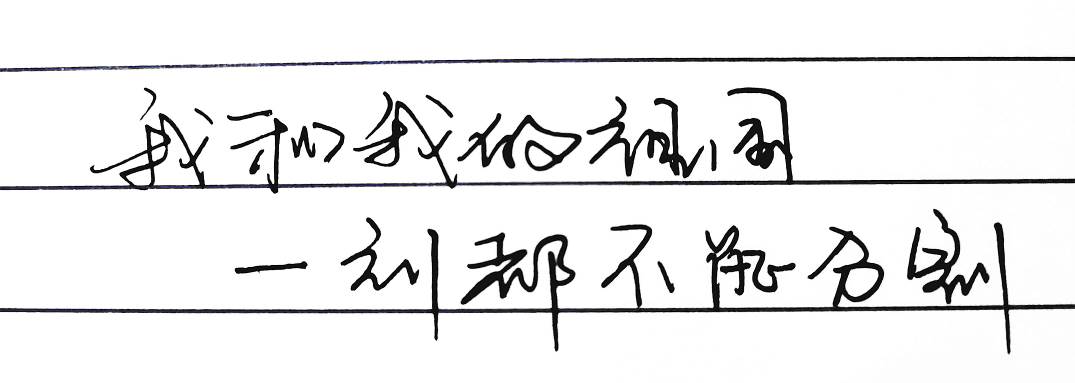 我和我的祖国
一刻都不能分割